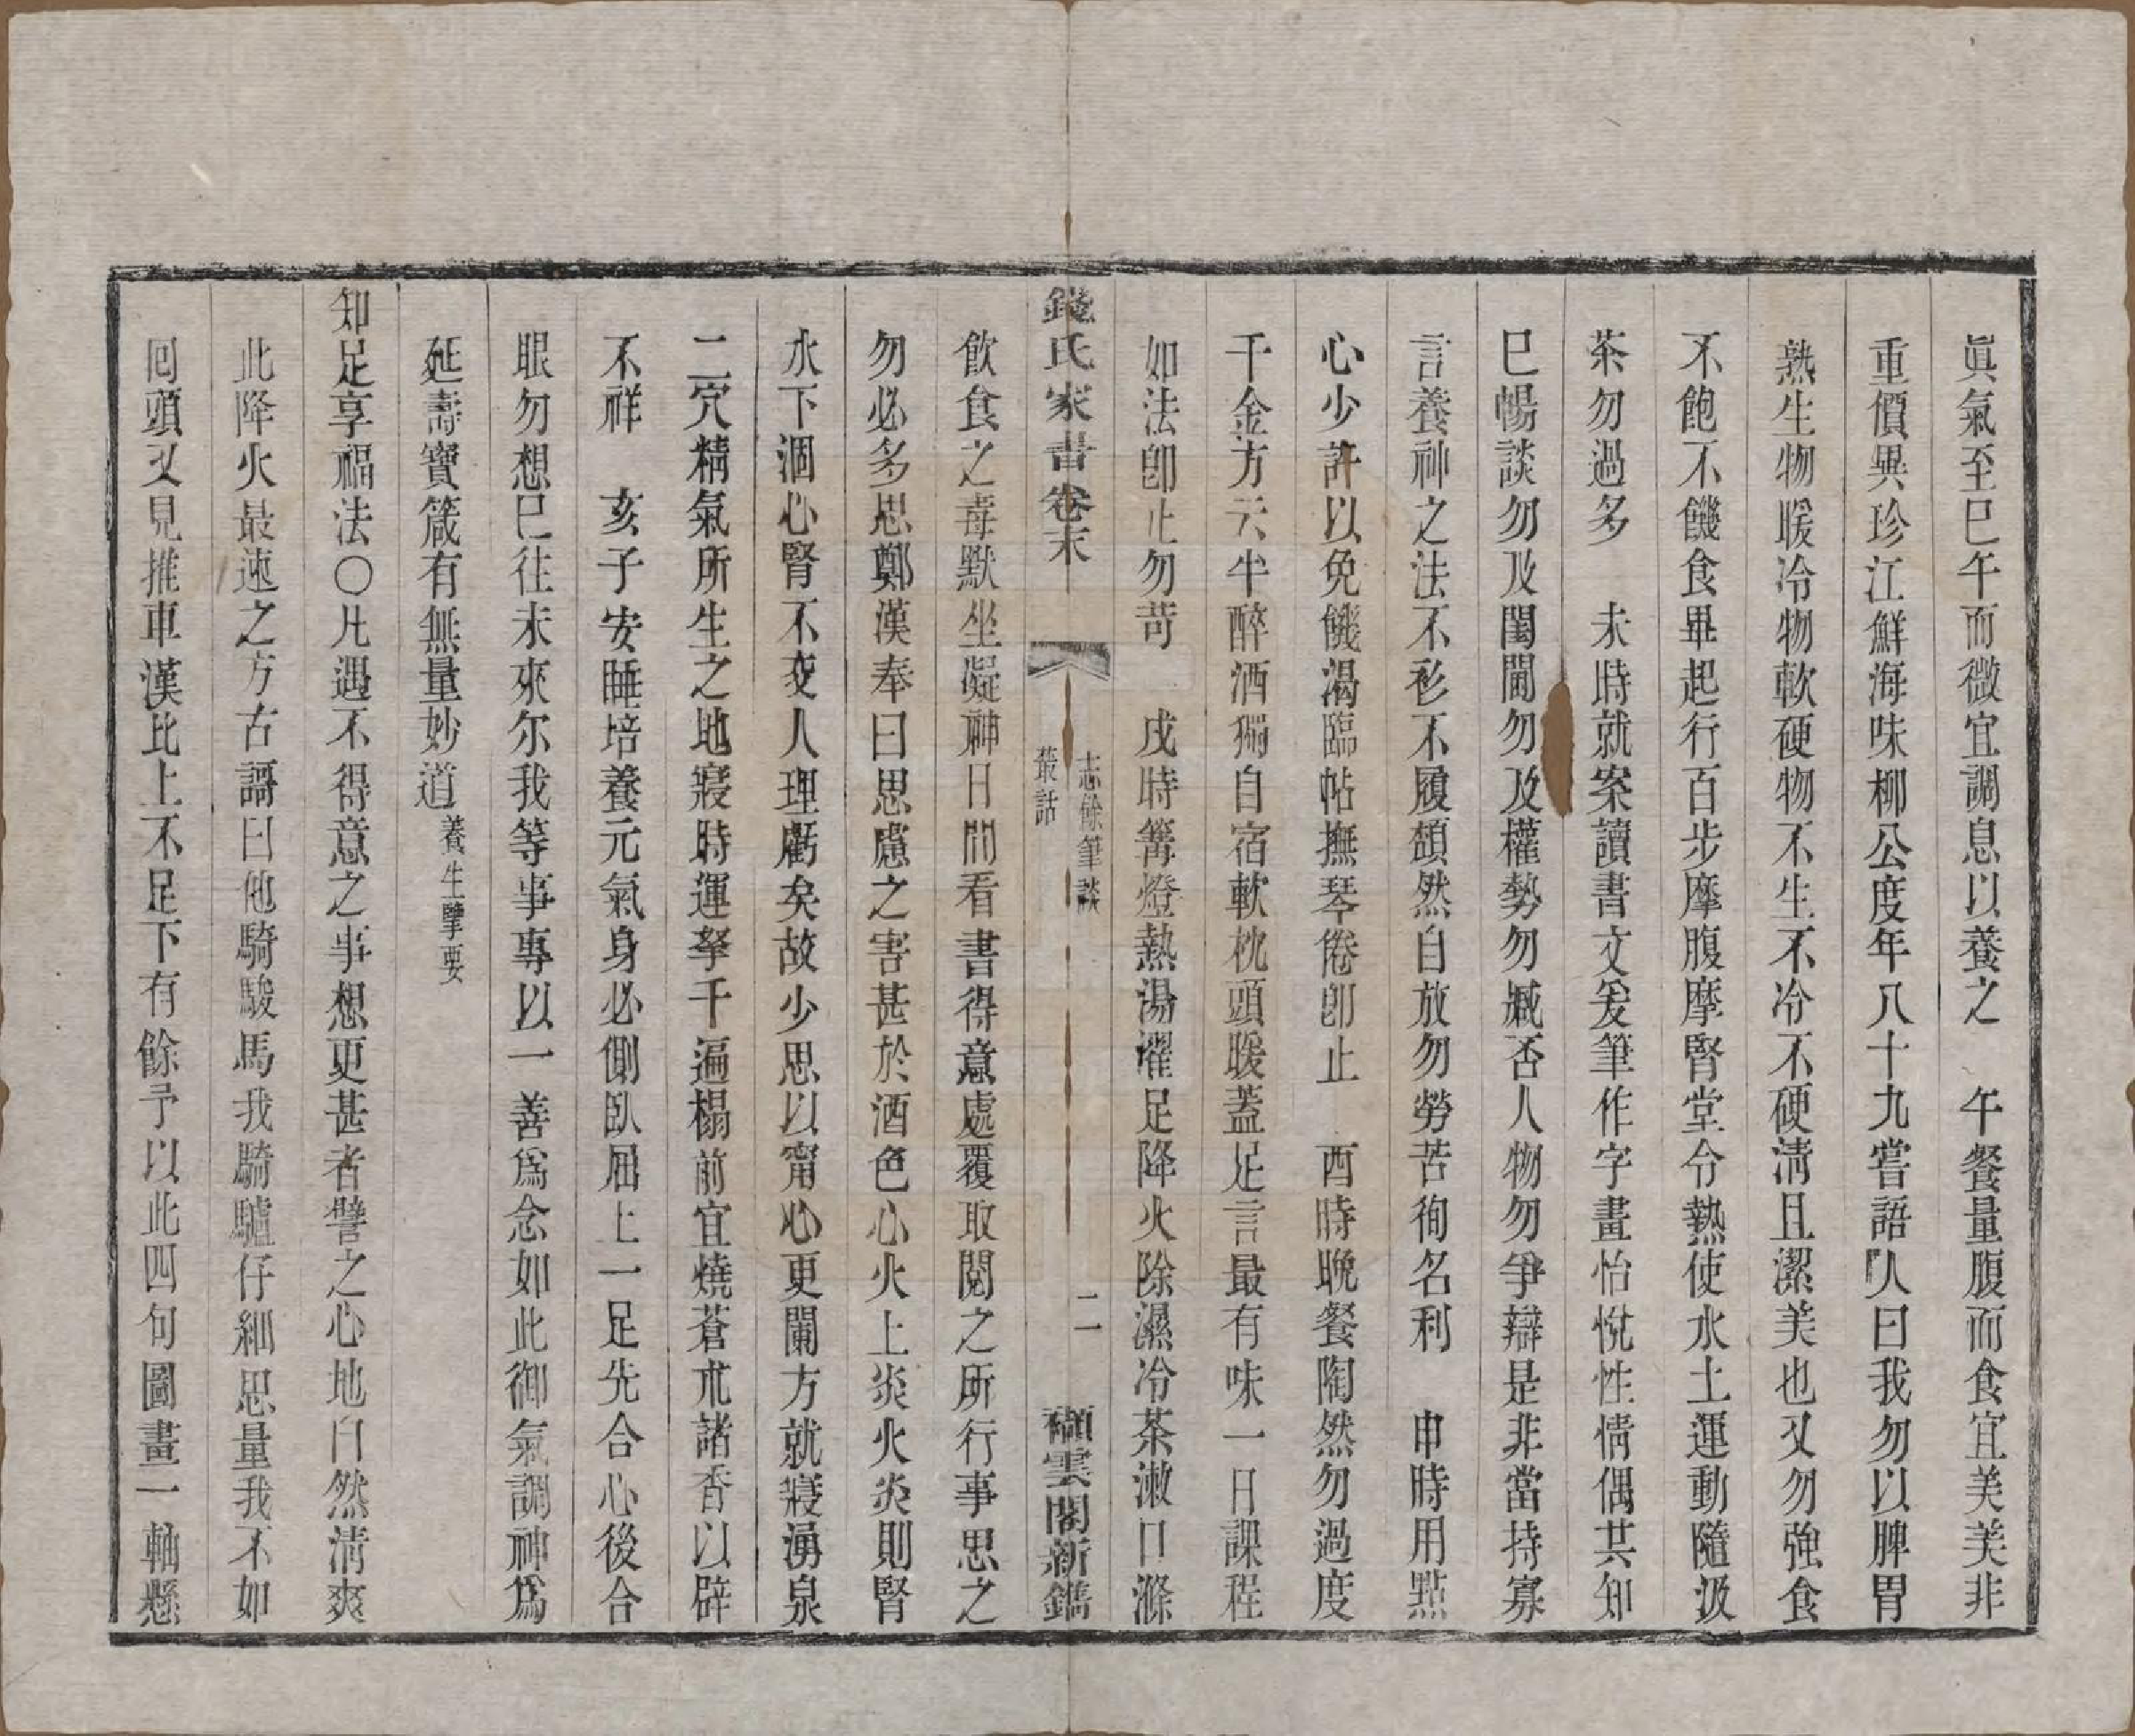 眞氣至巳午而微宜調息以養之　午餐量腹而食宜美美非
重價異珍江鮮海味柳公度年八十九嘗語人曰我勿以脾胃
熟生物暖冷物軟硬物不生不冷不硬淸且潔美也又勿強食
不飽不饑食畢起行百步摩腹摩腎堂令熱使水土運動隨汲
茶勿過多　未時就案讀書文爰筆作字畫怡悅性情偶共知
巳暢談勿及閨閫勿及權勢勿臧否人物勿爭辯是非當持寡
言養神之法不衫不履頽然自放勿勞苦徇名利　申時用點
心少許以免饑渴臨帖撫琴倦卽止　酉時晚餐陶然勿過度
千金方云半醉酒獨自宿軟枕頭暖蓋足言最有味一日課程
如法卽止勿苛　戌時篝燈熱湯濯足降火除濕冷茶漱口滌
錢氏家書卷末
志餘筆談
叢話
二
纈雲閣新鐫
飮食之毒默坐凝神日間看書得意處覆取閱之所行事思之
勿必多思鄭漢奉曰思慮之害甚於酒色心火上炎火炎則腎
水下涸心腎不交人理虧矣故少思以甯心更闌方就寢湧泉
二穴精氣所生之地寢時運拏千遍榻前宜燒蒼朮諸香以辟
不祥　亥子安睡培養元氣身必側臥屈上一足先合心後合
眼勿想巳往未來尔我等事專以一善爲念如此御氣調神爲
延壽寶箴有無量妙道養生擥要
知足享福法〇凡遇不得意之事想更甚者譬之心地自然淸爽
此降火最速之方古謌曰他騎駿馬我騎驢仔細思量我不如
囘頭又見推車漢比上不足下有餘予以此四句圖畫一軸懸